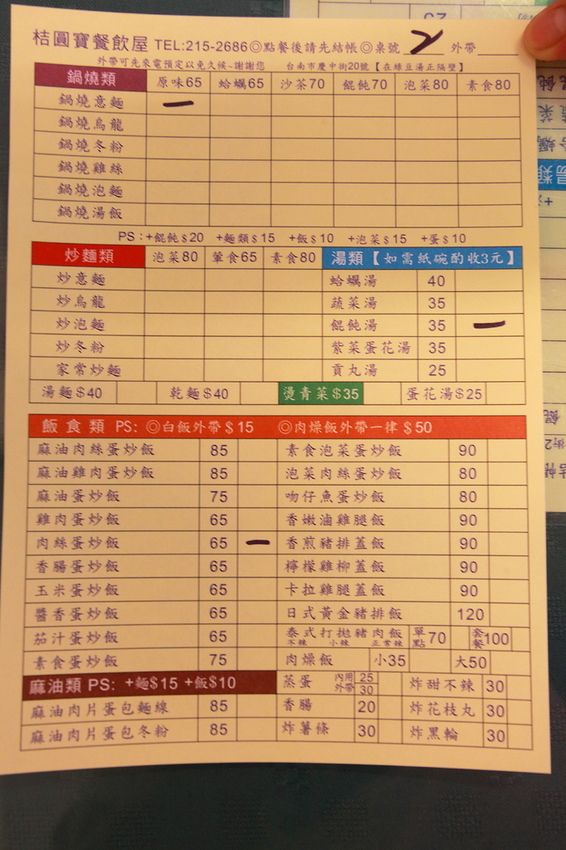 桔圓寶餐飲屋 TEL:215-2686◎點餐後請先結帳◎桌號 2 外帶
外帶可先來電預定以免久候~謝謝您 台南市慶中街20號【在綠豆湯正隔壁】
鍋燒類 原味65 蛤蠣65 沙茶70 餛飩70 泡菜80 素食80
鍋燒意麵 一
鍋燒烏龍
鍋燒冬粉
鍋燒雞絲
鍋燒泡麵
鍋燒湯飯
PS:+餛飩$20 +麵類$15 +飯$10 +泡菜$15 +蛋$10
炒麵類 泡菜80 葷食65 素食80 湯類【如需紙碗酌收3元】
炒意麵 蛤蠣湯 40
炒烏龍 蔬菜湯 35
炒泡麵 餛飩湯 35 一
炒冬粉 紫菜蛋花湯 35
家常炒麵 貢丸湯 25
湯麵$40 乾麵$40 燙青菜$35 蛋花湯$25
飯食類 PS: ◎白飯外帶$15 ◎肉燥飯外帶一律$50
麻油肉絲蛋炒飯 85 素食泡菜蛋炒飯 90
麻油雞肉蛋炒飯 85 泡菜肉絲蛋炒飯 80
麻油蛋炒飯 75 吻仔魚蛋炒飯 80
雞肉蛋炒飯 65 香嫩滷雞腿飯 90
肉絲蛋炒飯 65 一 香煎豬排蓋飯 90
香腸蛋炒飯 65 檸檬雞柳蓋飯 90
玉米蛋炒飯 65 卡拉雞腿蓋飯 90
醬香蛋炒飯 65 日式黃金豬排飯 120
茄汁蛋炒飯 65 泰式打拋豬肉飯 單點70 套餐100
不辣 小辣 正常辣
素食蛋炒飯 75 肉燥飯 小35 大50
麻油類 PS: +麵$15 +飯$10 蒸蛋 內用25 外帶30 炸甜不辣 30
麻油肉片蛋包麵線 85 香腸 20 炸花枝丸 30
麻油肉片蛋包冬粉 85 炸薯條 30 炸黑輪 30